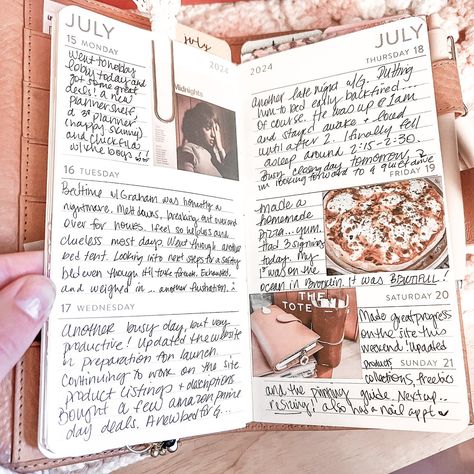 JULY
July
JULY
15 MONDAY
2024
2024
THURSDAY 18
Went to hobby
lobby today and
got some great
deals! a new
planner shelf
a 3 planner
(happy sunny)
and chick fil a
w/ the boys!
Midnights
another late night w/G. Putting
him to bed early backfired...
of course. He was up @ 1am
and stayed awake + loud
until after 2. I finally fell
asleep around 2:15-2:30.
Busy day tomorrow
looking forward to a quiet one
16 TUESDAY
Bedtime w/ Graham was honestly a
nightmare. Meltdowns, breaking out over and
over for hours. I feel so helpless and
clueless most days. Went through another
bed tent. Looking into next steps for a safety
bed even though it'll take forever. Exhausted.
and weighed in ... another frustration.
FRIDAY 19
made a
homemade
pizza...yum.
Had 3 signings
today. My
was on the
ocean in
It was BEAUTIFUL!
17 WEDNESDAY
Another busy day, but very
productive! Updated the website
in preparation for launch.
Continuing to work on the site
product listings + descriptions.
Bought a few amazon prime
day deals. A new bed for G...
SATURDAY 20
THE
TOTE
Made great progress
on the site this
weekend! Upoaded
products
SUNDAY 21
collections, freebies
and the pinking guide. Next up..
resizing! also has a nail appt